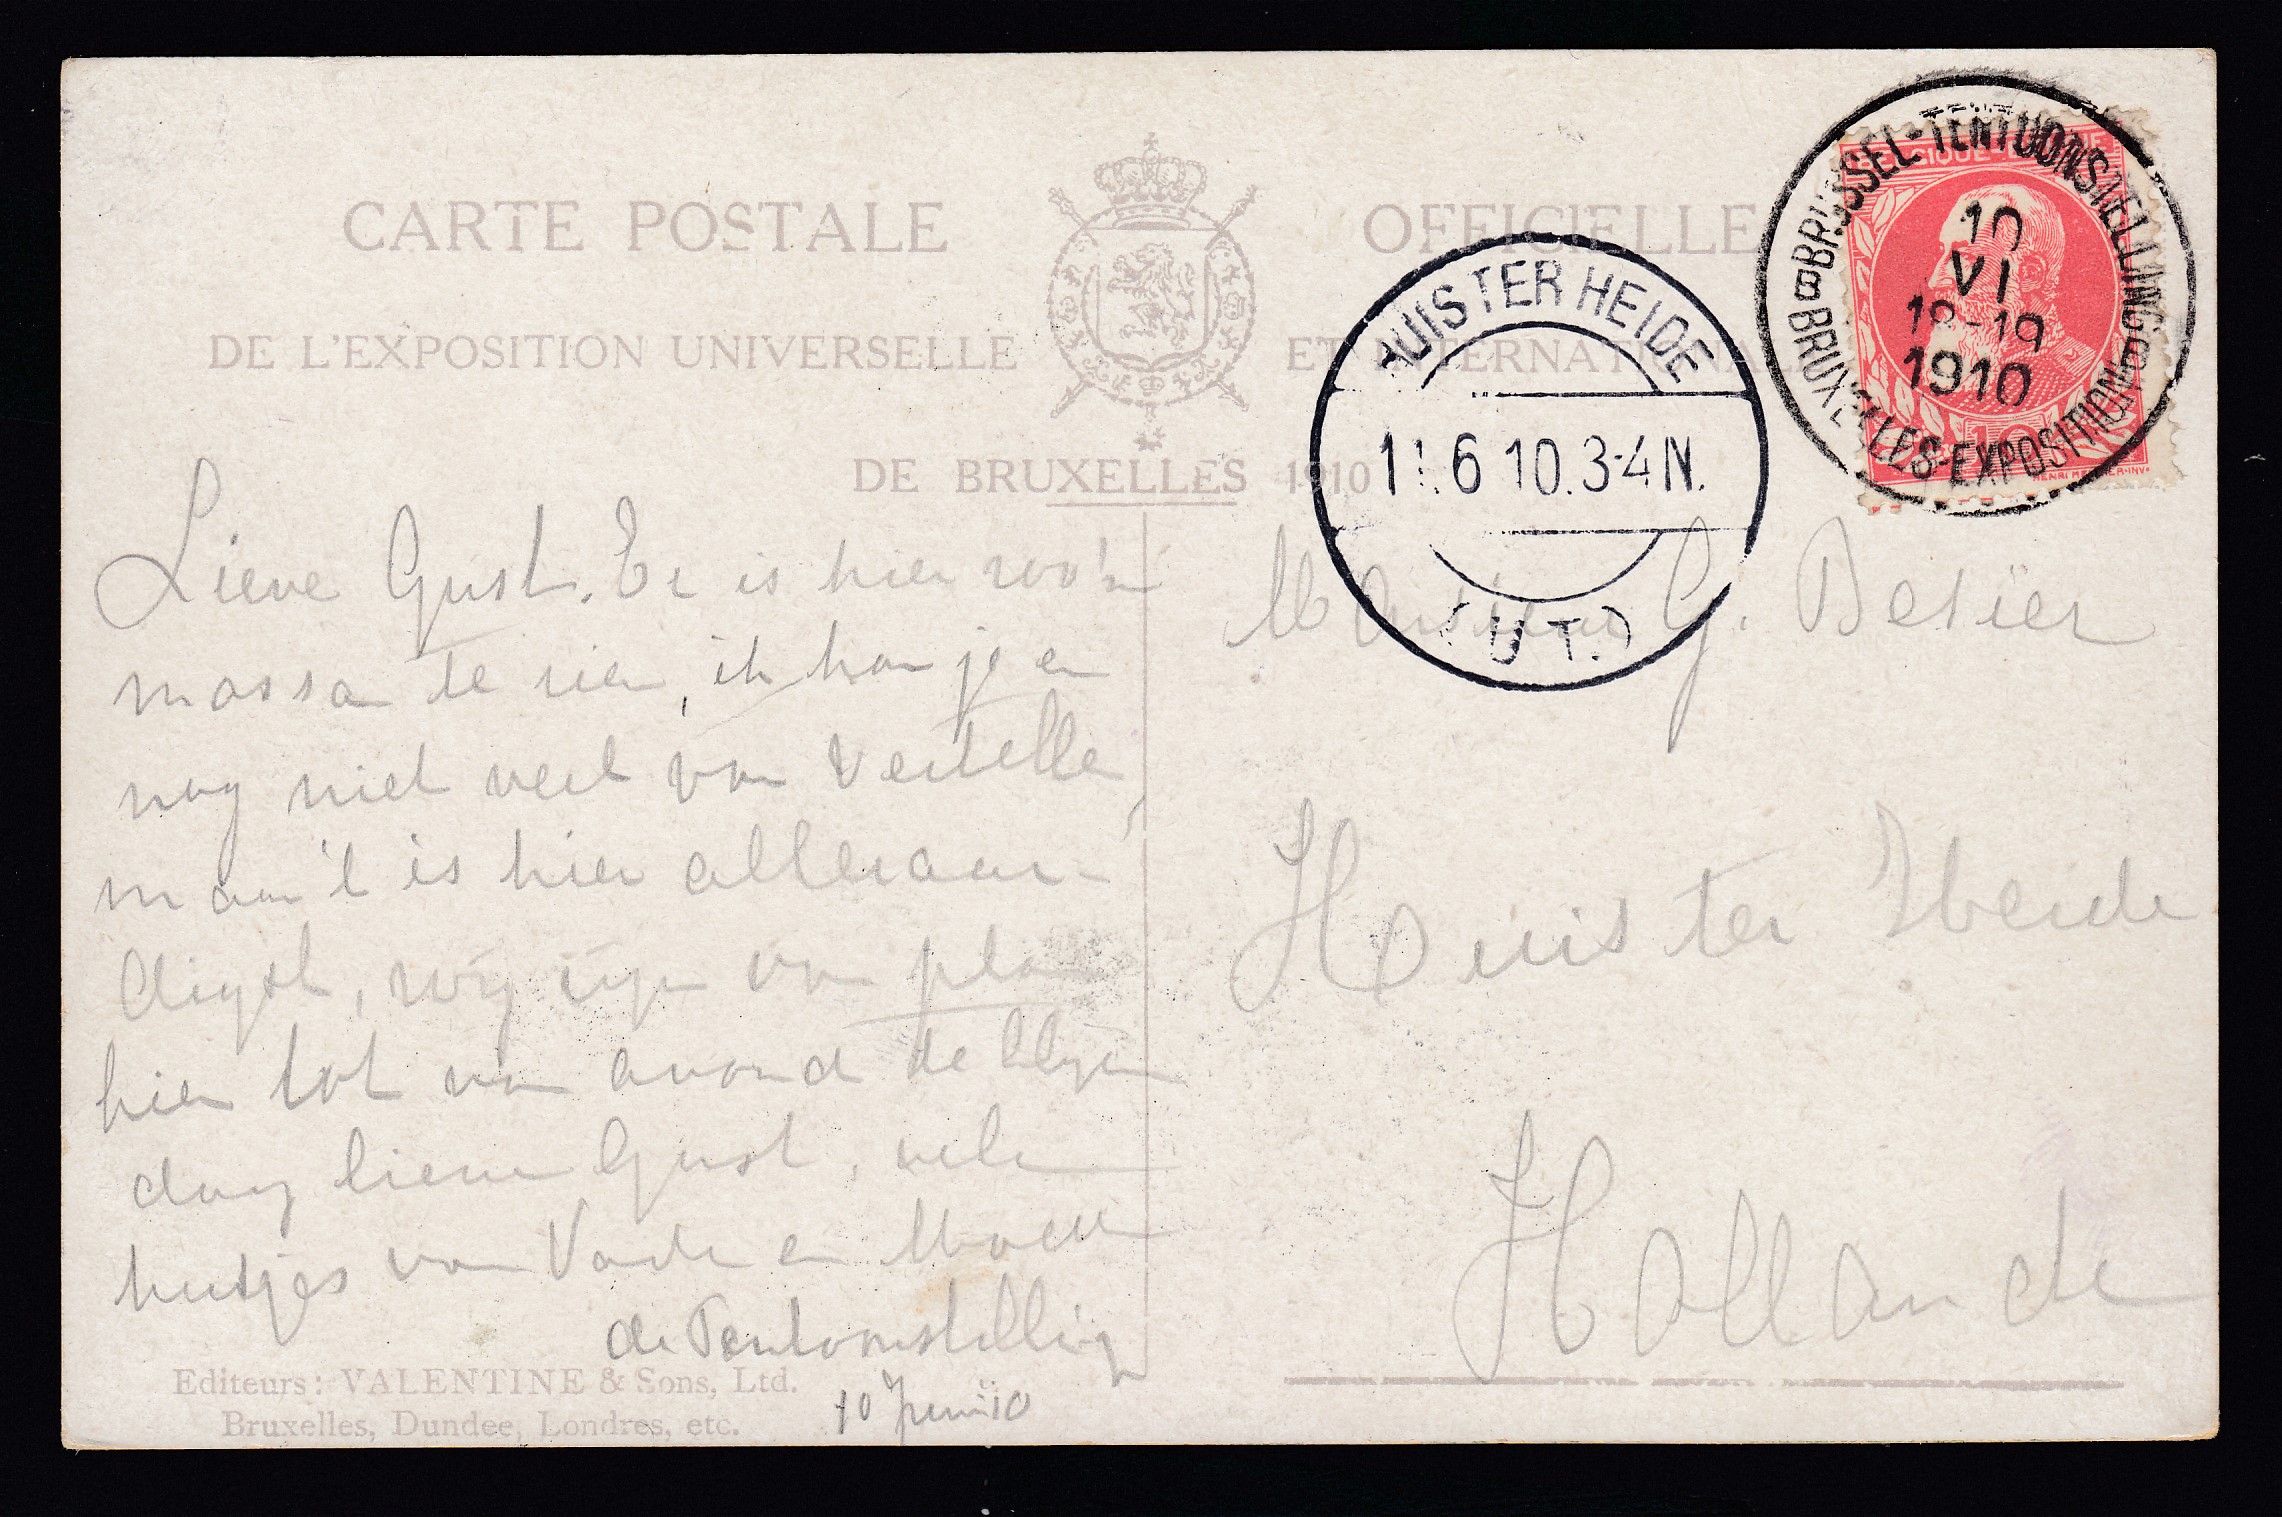 CARTE POSTALE OFFICIELLE
DE L'EXPOSITION UNIVERSELLE ET INTERNATIONA
DE BRUXELLES 1910
BRUSSEL-TENTOONSTELLING
10
VI
18-19
1910
B BRUXELLES-EXPOSITION B
HUIS TER HEIDE
11.6 10.3-4N.
(UT.)
Lieve Gust. Er is hier zoo'n
massa te zien, ik kan je er
nog niet veel van vertelle,
maar 't is hier alleraar-
digst, wij zijn van plan
hier tot van avond te blijven
dag lieve Gust, vele
kusjes van Vader en Moeder
de Tentoonstelling
10 Juni 10
Monsieur G. Besier
Huis ter Heide
Hollande
Editeurs: VALENTINE & Sons, Ltd.
Bruxelles, Dundee, Londres, etc.